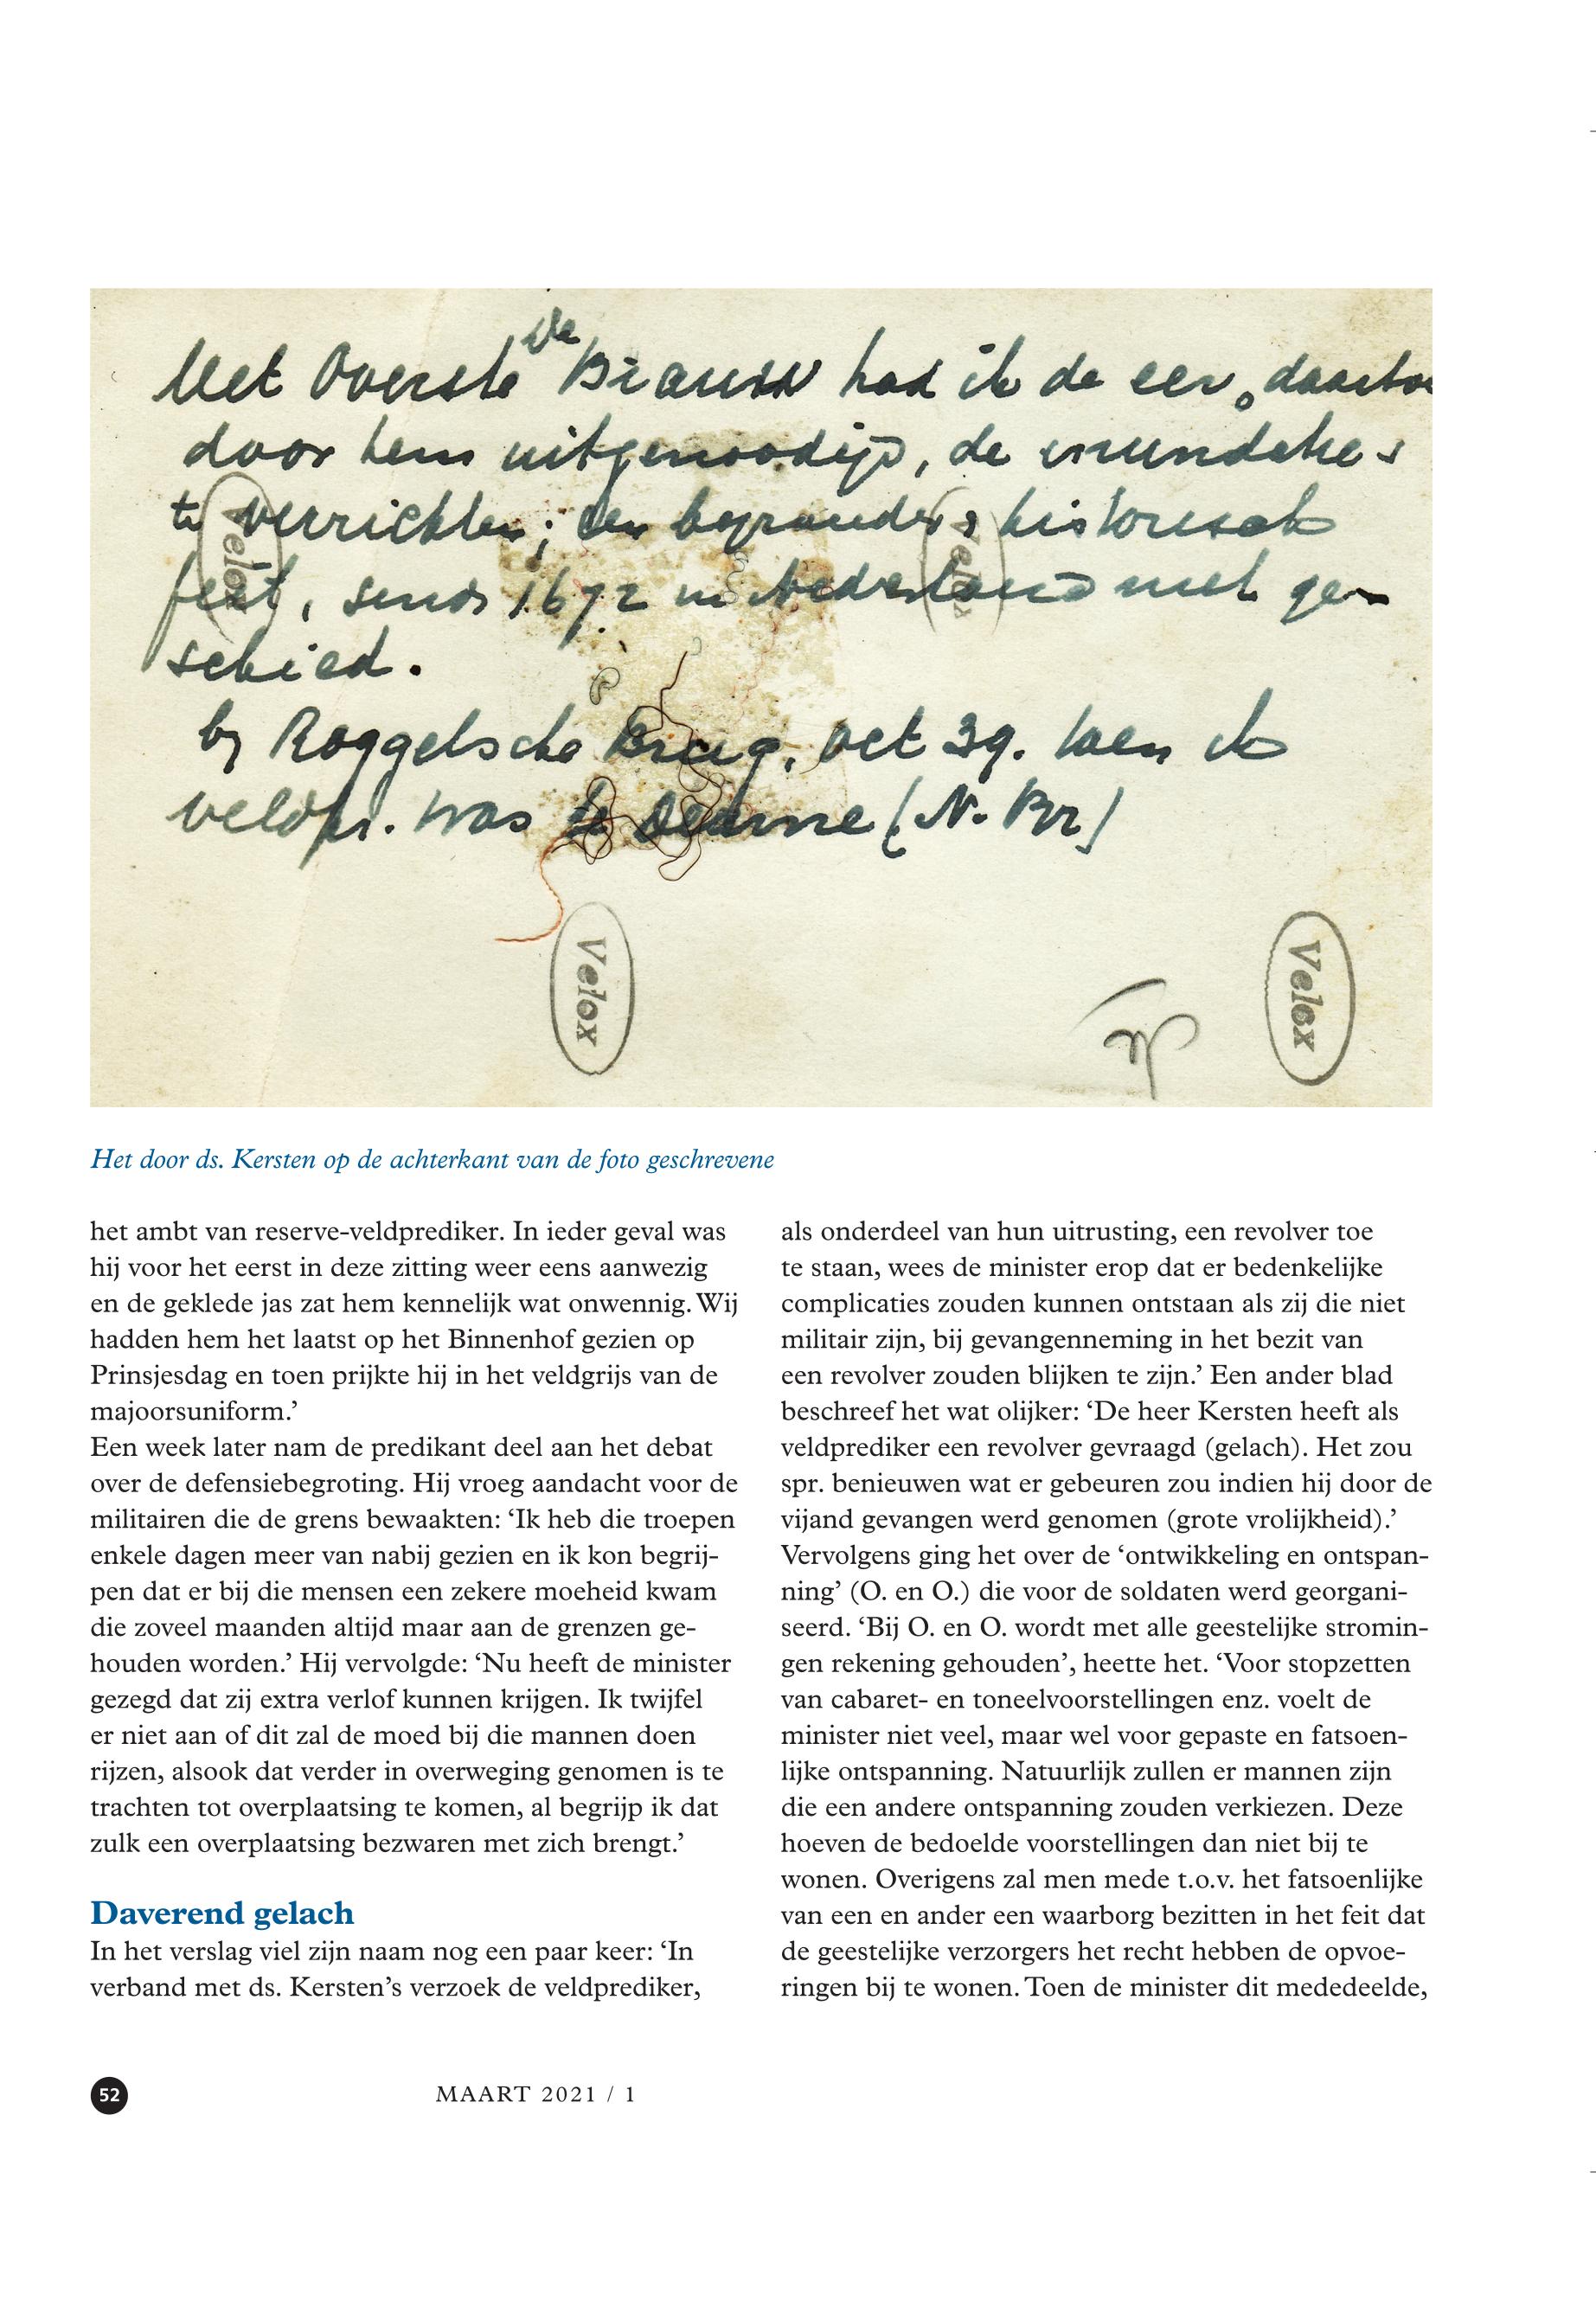 Met Overste de Brauw had ik de eer, daartoe
door hem uitgenoodigd, de
te verrichten; een bijzonder historisch
feit, sinds 1672 in Nederland niet ge-
schied.
by Roggelsche Brug, Oct 39. toen ik
veldpr. was te Deurne (N. Br)
Velox
Velox
Velox
Velox
Het door ds. Kersten op de achterkant van de foto geschrevene
het ambt van reserve-veldprediker. In ieder geval was
hij voor het eerst in deze zitting weer eens aanwezig
en de geklede jas zat hem kennelijk wat onwennig. Wij
hadden hem het laatst op het Binnenhof gezien op
Prinsjesdag en toen prijkte hij in het veldgrijs van de
majoorsuniform.’
Een week later nam de predikant deel aan het debat
over de defensiebegroting. Hij vroeg aandacht voor de
militairen die de grens bewaakten: ‘Ik heb die troepen
enkele dagen meer van nabij gezien en ik kon begrij-
pen dat er bij die mensen een zekere moeheid kwam
die zoveel maanden altijd maar aan de grenzen ge-
houden worden.’ Hij vervolgde: ‘Nu heeft de minister
gezegd dat zij extra verlof kunnen krijgen. Ik twijfel
er niet aan of dit zal de moed bij die mannen doen
rijzen, alsook dat verder in overweging genomen is te
trachten tot overplaatsing te komen, al begrijp ik dat
zulk een overplaatsing bezwaren met zich brengt.’
Daverend gelach
In het verslag viel zijn naam nog een paar keer: ‘In
verband met ds. Kersten’s verzoek de veldprediker,
als onderdeel van hun uitrusting, een revolver toe
te staan, wees de minister erop dat er bedenkelijke
complicaties zouden kunnen ontstaan als zij die niet
militair zijn, bij gevangenneming in het bezit van
een revolver zouden blijken te zijn.’ Een ander blad
beschreef het wat olijker: ‘De heer Kersten heeft als
veldprediker een revolver gevraagd (gelach). Het zou
spr. benieuwen wat er gebeuren zou indien hij door de
vijand gevangen werd genomen (grote vrolijkheid).’
Vervolgens ging het over de ‘ontwikkeling en ontspan-
ning’ (O. en O.) die voor de soldaten werd georgani-
seerd. ‘Bij O. en O. wordt met alle geestelijke stromin-
gen rekening gehouden’, heette het. ‘Voor stopzetten
van cabaret- en toneelvoorstellingen enz. voelt de
minister niet veel, maar wel voor gepaste en fatsoen-
lijke ontspanning. Natuurlijk zullen er mannen zijn
die een andere ontspanning zouden verkiezen. Deze
hoeven de bedoelde voorstellingen dan niet bij te
wonen. Overigens zal men mede t.o.v. het fatsoenlijke
van een en ander een waarborg bezitten in het feit dat
de geestelijke verzorgers het recht hebben de opvoe-
ringen bij te wonen. Toen de minister dit mededeelde,
52
MAART 2021 / 1